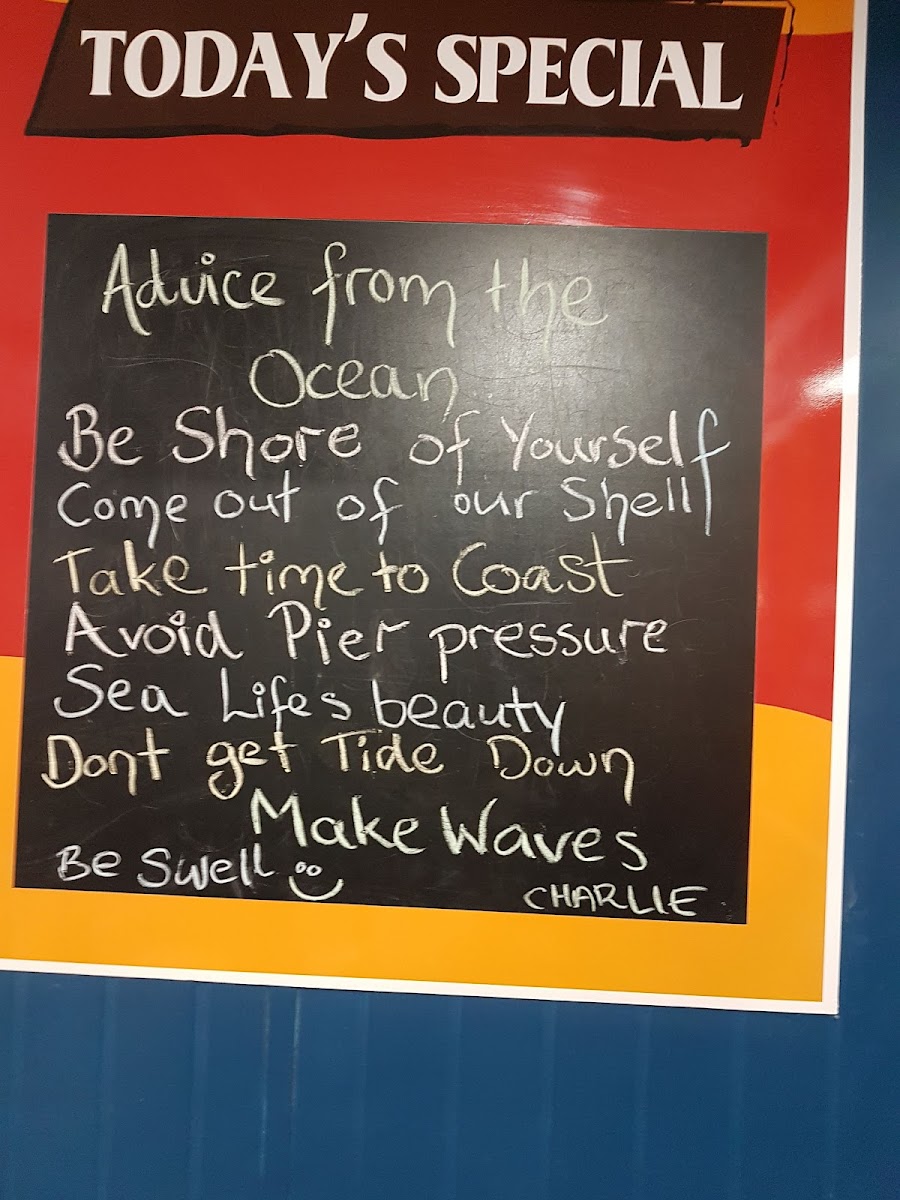 TODAY'S SPECIAL
Advice from the
Ocean
Be Shore of Yourself
Come out of our Shell
Take time to Coast
Avoid Pier pressure
Sea Lifes beauty
Dont get Tide Down
Make Waves
Be Swell
CHARLIE